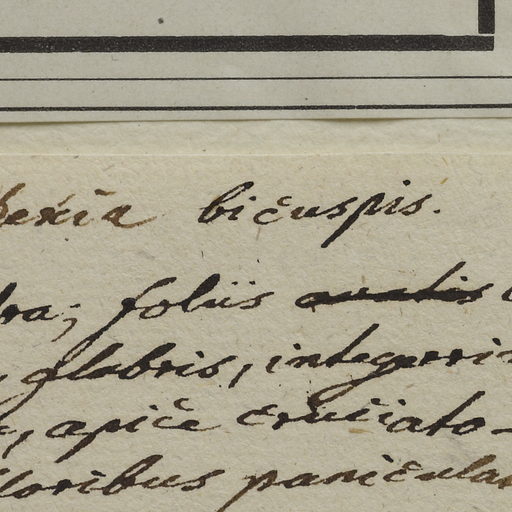 bexia bicuspis.
bra; foliis ovatis
glabris, integerri
apice cruciato-
floribus paniculat